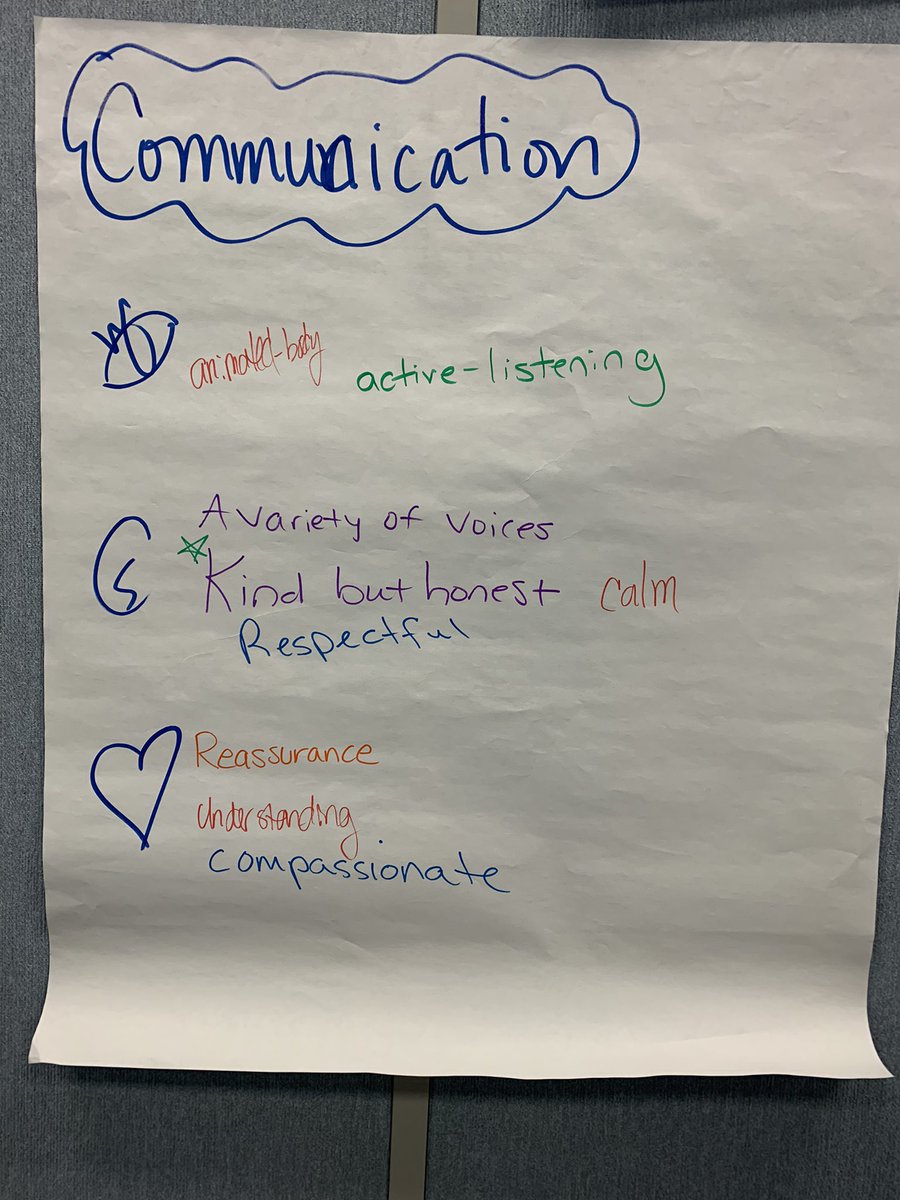 Communication
animated-body active-listening
A variety of voices
Kind but honest calm
Respectful
Reassurance
understanding
compassionate